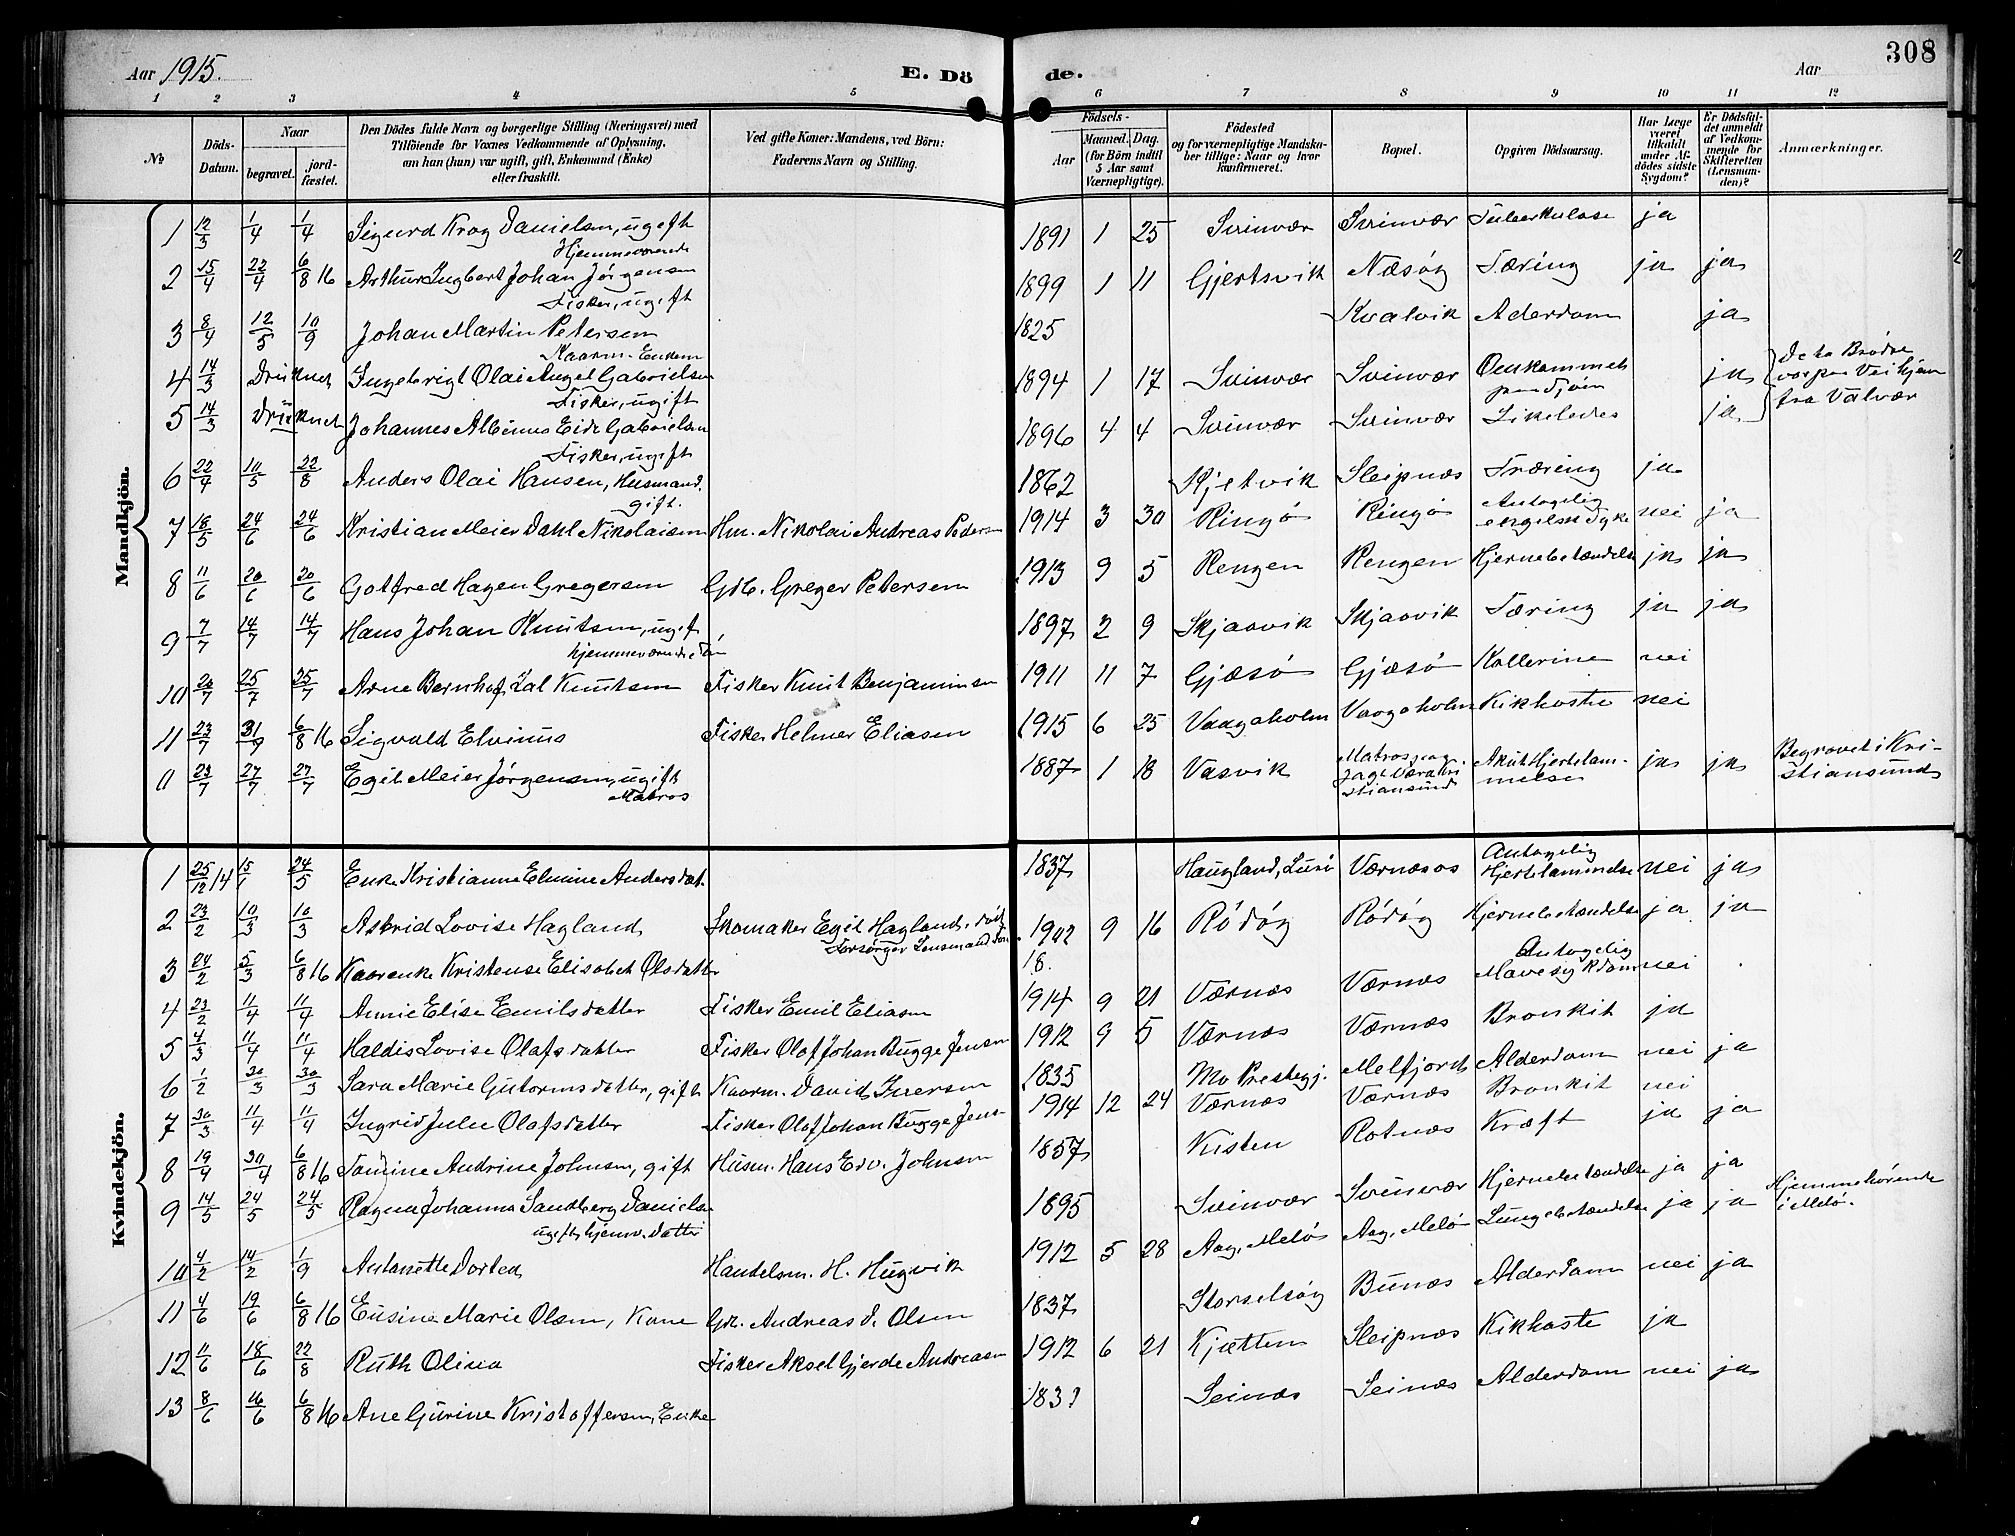 308
Aar 1915. E. Dö de. Aar
1 2 3 4 5 6 7 8 9 10 11 12
№ Döds-Datum. Naar begravet. jord-fæstet. Den Dödes fulde Navn og borgerlige Stilling (Næringsvei) med Tilföiende for Voxnes Vedkommende af Oplysning, om han (hun) var ugift, gift, Enkemand (Enke) eller fraskilt. Ved gifte Koner: Mandens, ved Börn: Faderens Navn og Stilling. Födsels- Aar Maaned. Dag. (for Börn indtil 5 Aar samt Værnepligtige). Födested og for værnepligtige Mandskaber tillige: Naar og hvor konfirmeret. Bopæl. Opgiven Dödsaarsag. Har Læge været tilkaldt under Afdödes sidste Sygdom? Er Dödsfaldet anmeldt af Vedkommende for Skifteretten (Lensmanden)? Anmærkninger.
Mandkjön.
1 12/3 1/4 1/4 Sigurd Krog Danielsen, ugift Hjemmeværende 1891 1 25 Svinvær Svinvær Tuberkulose ja
2 15/4 22/4 6/8 16 Arthur Ingbert Johan Jørgensen Fisker, ugift 1899 1 11 Gjertsvik Næsøy Tæring ja ja
3 8/4 12/5 10/9 Johan Martin Petersen Kaarm. Enkem 1825 Kvalvik Alderdom ja
4 14/3 Druknet Ingebrigt Olai Angel Gabrielsen Fisker, ugift 1894 1 17 Svinvær Svinvær Omkommet paa Sjøen ja De to Brødre var paa Vei hjem fra Valvær
5 14/3 Druknet Johannes Albinus Eide Gabrielsen Fisker, ugift 1896 4 4 Svinvær Svinvær Likeledes ja
6 22/4 10/5 22/8 Anders Olai Hansen, Husmand. gift. 1862 Kjetvik Sleipnæs Tæring ja
7 18/5 24/6 24/6 Kristian Meier Dahl Nikolaisen Hm. Nikolai Andreas Pedersen 1914 3 30 Ringø Ringø Antagelig engelsk Syke nei ja
8 11/6 20/6 20/6 Gotfred Hagen Gregersen Gdb. Greger Petersen 1913 9 5 Rengen Rengen Hjernebetændelse ja ja
9 7/7 14/7 14/7 Hans Johan Knutsen, ugift hjemmeværende Søn 1897 2 9 Skjaavik Skjaavik Tæring ja ja
10 20/7 25/7 25/7 Arne Bernhof Dal Knutsen Fisker Knut Benjaminsen 1911 11 7 Gjæsø Gjæsø Kollerine nei
11 23/7 31/7 6/8 16 Sigvald Elvinus Fisker Helmer Eliasen 1915 6 25 Vaagaholm Vaagaholm Kikhoste nei
11 23/7 27/7 27/7 Egil Meier Jørgensen, ugift Matros 1887 1 18 Vasvik Matros paa Jagt Væra Kristiansund Akut Hjertelammelse ja ja Begravet i Kristiansund
Kvindekjön.
1 25/12 14 15/1 24/5 Enke Kristianne Elmine Andersdat. 1837 Haugland, Lurø Værnæsos Antagelig Hjertelammelse nei ja
2 23/2 10/3 10/3 Astrid Lovise Hagland Skomaker Egil Hagland, død Forsørger Lensmand 1902 9 16 Rødøy Rødøy Hjernebetændelse ja ja
3 24/2 5/3 6/8 16 Kaarenke Kristense Elisabet Olsdatter 18. Antagelig
4 23/2 11/4 11/4 Annie Elise Emilsdatter Fisker Emil Eliasen 1914 9 21 Værnæs Værnæs Mavesykdom nei
5 4/3 11/4 11/4 Haldis Lovise Olafsdatter Fisker Olaf Johan Bugge Jensen 1912 9 5 Værnæs Værnæs Bronkit ja
6 1/2 30/3 30/3 Sara Marie Gutormsdatter, gift Kaarm. David Iversen 1835 Mo Prestegj. Melfjord Alderdom nei ja
7 30/3 11/4 11/4 Ingrid Julie Olafsdatter Fisker Olaf Johan Bugge Jens- 1914 12 24 Værnæs Værnæs Bronkit nei
8 19/4 30/4 6/8 16 Tomine Andrine Johnsen, gift Husm. Hans Edv. Johnsen 1857 Kisten Rotnæs Kræft ja ja
9 14/5 24/5 24/5 Ragna Johanna Sandberg Daniels- ugift hjemv. Datter 1895 Svinvær Svinvær Hjernebetændelse ja ja
10 4/2 14/2 1/9 Antonette Dortea Handelsm. H. Hugvik 1912 5 28 Aag, Melø Aag, Melø Lungebetændelse ja ja Hjemmehørende i Melø.
11 4/6 19/6 6/8 16 Eusine Marie Olsen, Kone Gdb. Andreas J. Olsen 1837 Storselsøy Bunæs Alderdom nei ja
12 11/6 18/6 22/8 Ruth Olina Fisker Aksel Gjerde Andreasen 1912 6 21 Kjætten Sleipnæs Kikhoste ja
13 8/6 16/6 6/8 16 Ane Gurine Kristoffersen, Enke 1831 Seinæs Seinæs Alderdom nei ja